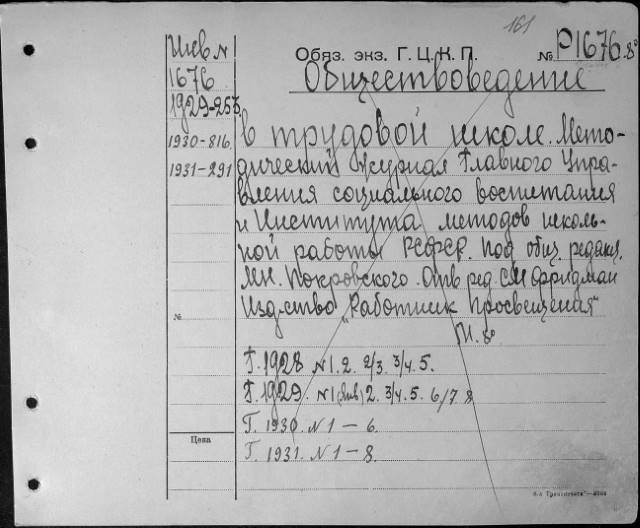 161
Инв. №
1676
1929-253
1930-816.
1931-291
Обяз. экз. Г. Ц. К. П.
№ Р1676. 8°
Обществоведение
в трудовой школе. Мето-
дический журнал Главного Упра-
вления социального воспитания
и Института методов школь-
ной работы РСФСР. Под общ. редакц.
М.Н. Покровского. Отв. ред. С.М. Фридман
Изд-ство „Работник Просвещения"
М. 8°
№
Г. 1928 №1. 2. 2/3. 3/4. 5.
Г. 1929. №1 (янв) 2. 3/4. 5. 6/7 8
Г. 1930. №1 — 6.
Г. 1931. №1 — 8.
Цена